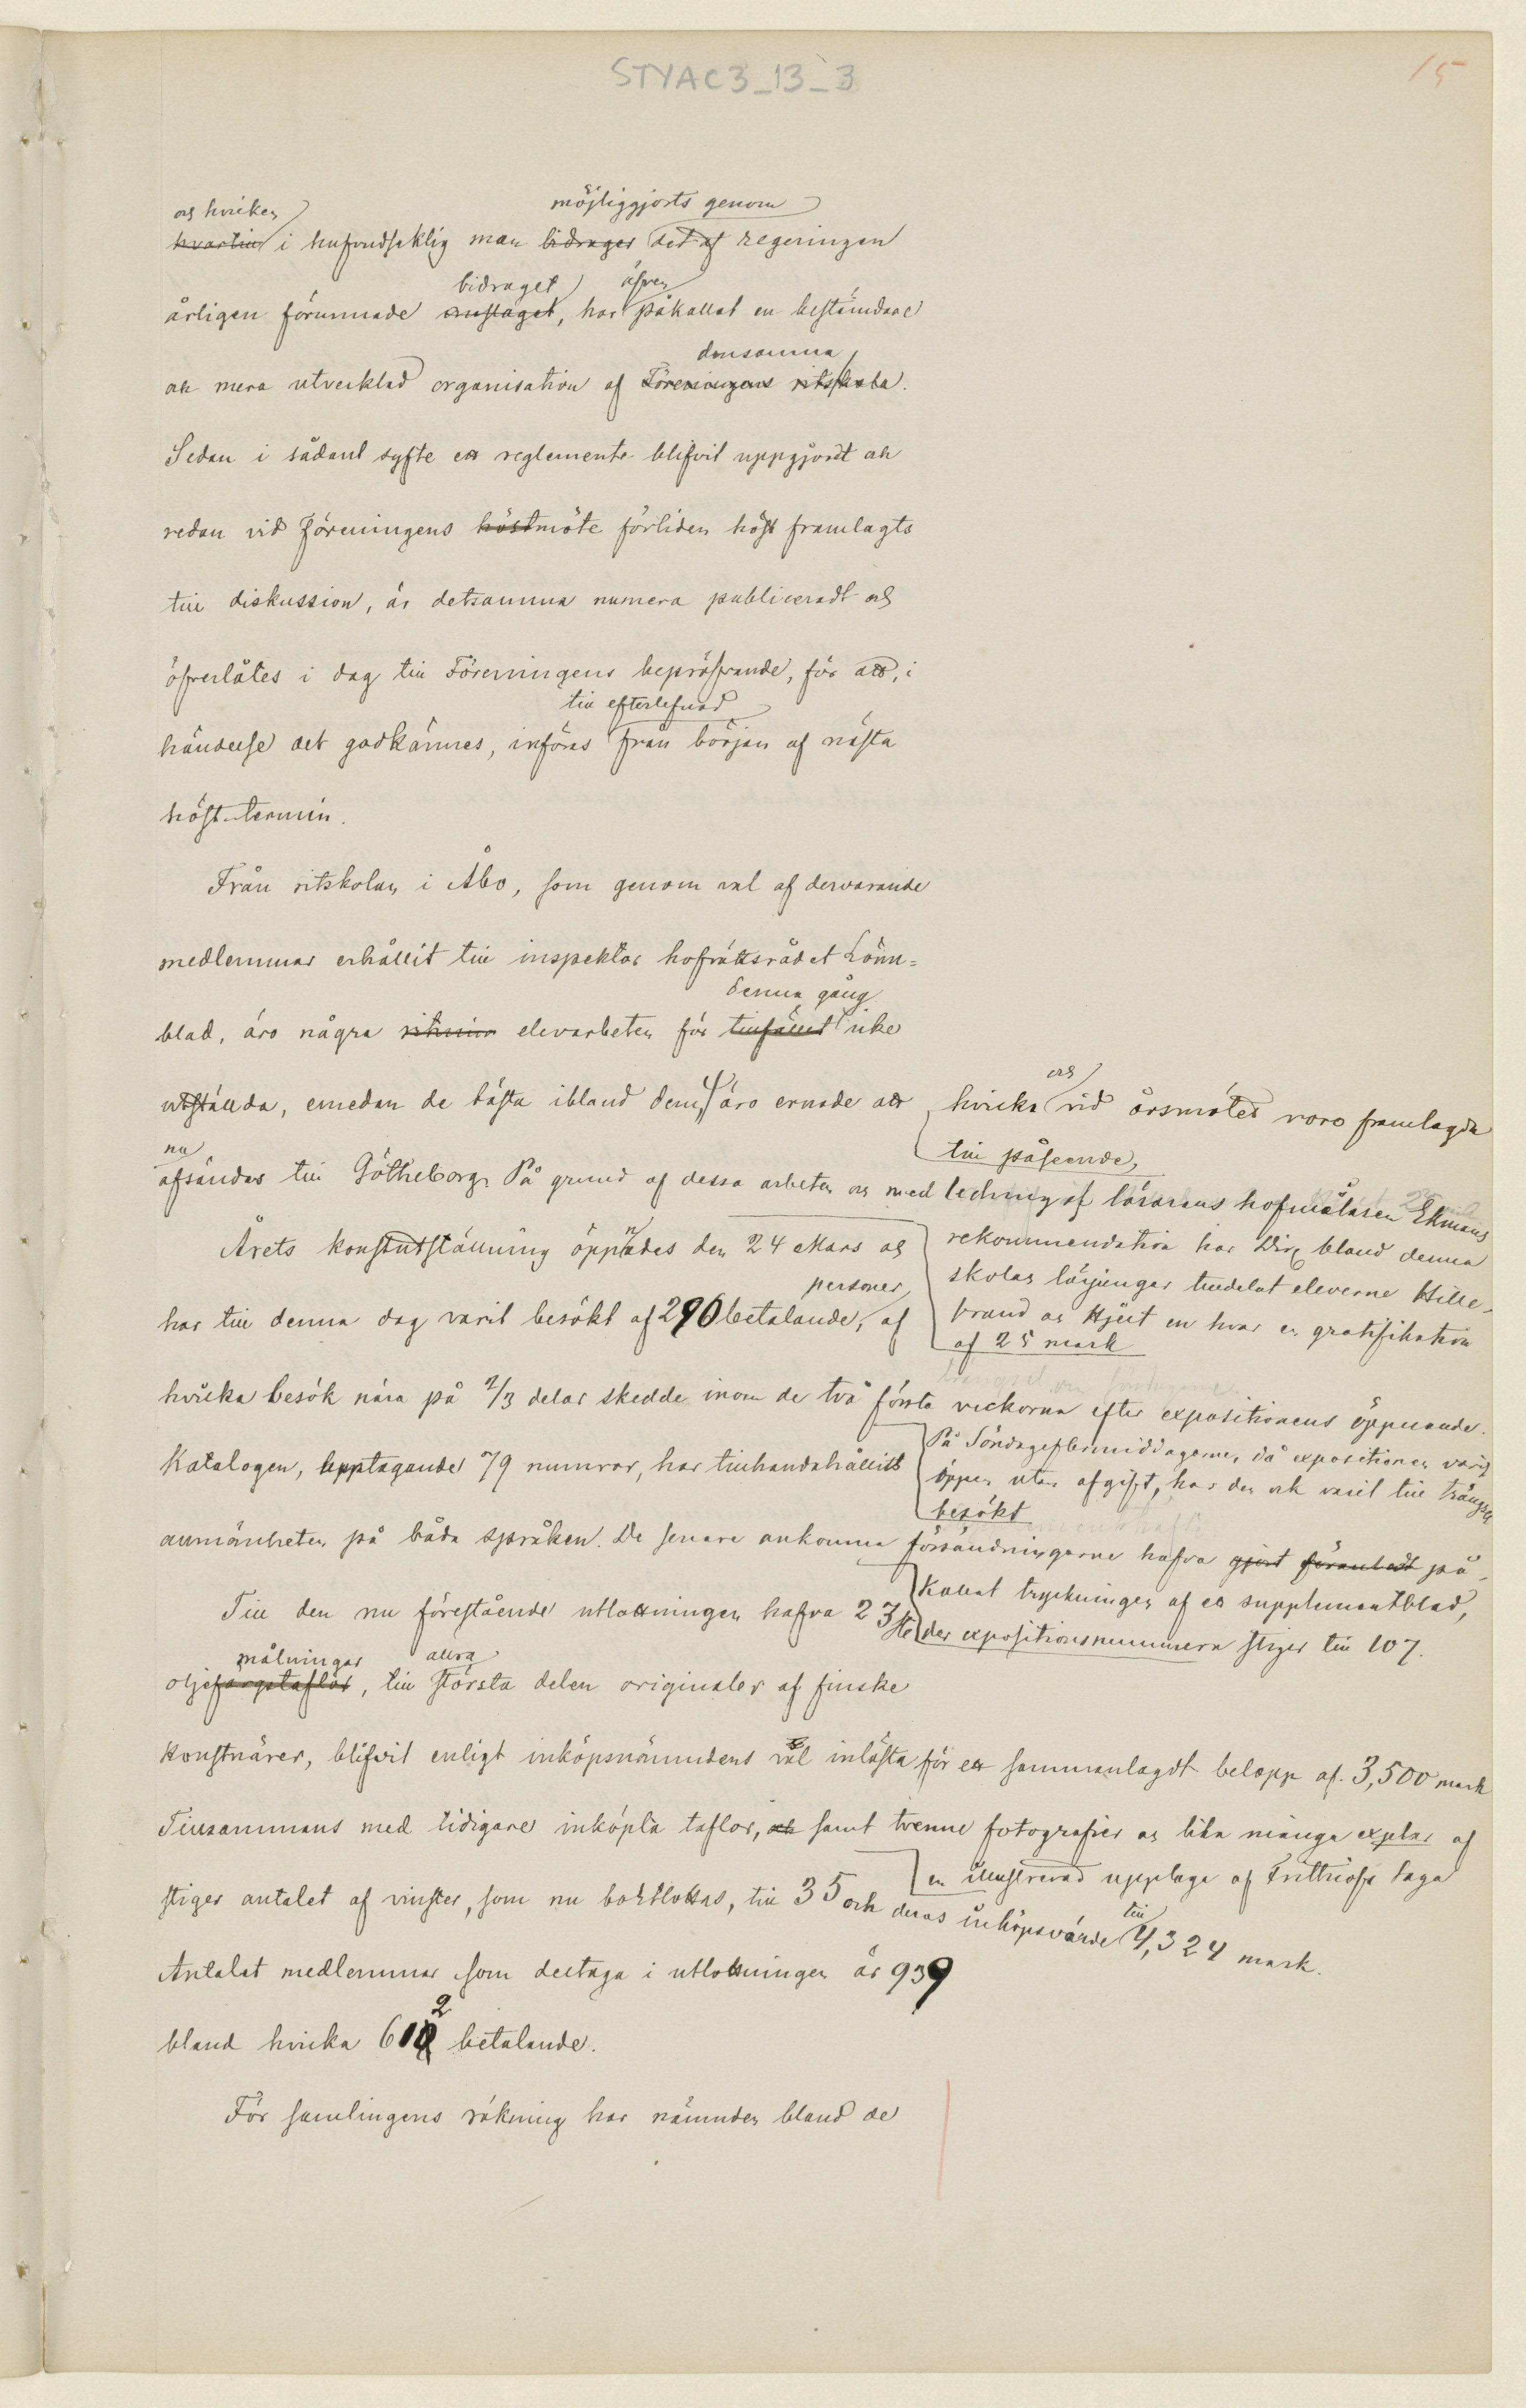 STYAC3_13_3
15
och hvilken möjliggjorts genom
hvartill i hufvudsaklig man bidrager det af regeringen
bidraget äfven
årligen förunnade anslaget, har påkallat en bestämdare
densamma
och mera utvecklad organisation af Föreningens ritskola.
Sedan i sådant syfte ett reglemente blifvit uppgjordt och
redan vid Föreningens höstmöte förliden höst framlagts
till diskussion, är detsamma numera publiceradt och
öfverlåtes i dag till Föreningens bepröfvande, för att, i
till efterlefnad
händelse det godkännes, införas från början af nästa
höst-termin.
Från ritskolan i Åbo, som genom val af dervarande
medlemmar erhållit till inspektor hofrättsrådet Lönn=
denna gång
blad, äro några elevarbeten för tillfället icke
utställda, emedan de bästa ibland dem, äro ernade att
nu
afsändas till Götheborg. På grund af dessa arbeten och med ledning af lärarens hofmålaren Ekmans
och
hvilka vid årsmötet voro framlagda
till påseende,
rekommendation har Dir. bland denna
skolas lärjungar tilldelat eleverne Hille-
brand och Hjelt en hvar en gratifikation
af 25 mark
Årets konstutställning öppnades den 24 Mars och
personer
har till denna dag varit besökt af 290 betalande, af
hvilka besök nära på 2/3 delar skedde inom de två första veckorna efter expositionens öppnande.
På Söndagseftermiddagarne, då expositionen varit
öppen utan afgift, har den ock varit till trängsel
besökt
Katalogen, upptagande 79 numror, har tillhandahållits
allmänheten på båda språken. De senare ankomna försändningarne hafva gjort föranledt på-
kallat tryckningen af ett supplementblad,
der expositionsnummern stiger till 107.
Till den nu förestående utlottningen hafva 23
målningar allra
oljefärgstaflor, till största delen originaler af finske
konstnärer, blifvit enligt inköpsnämndens val inlösta för ett sammanlagdt belopp af 3,500 mark
Tillsammans med tidigare inköpta taflor, och samt trenne fotografier och lika många explar af
en illustrerad upplaga af Frithiofs saga
stiger antalet af vinster, som nu bortlottas, till 35 och deras inköpsvärde till 4,324 mark.
Antalet medlemmar som deltaga i utlottningen är 939
2
bland hvilka 610 betalande.
För samlingens räkning har nämnden bland de